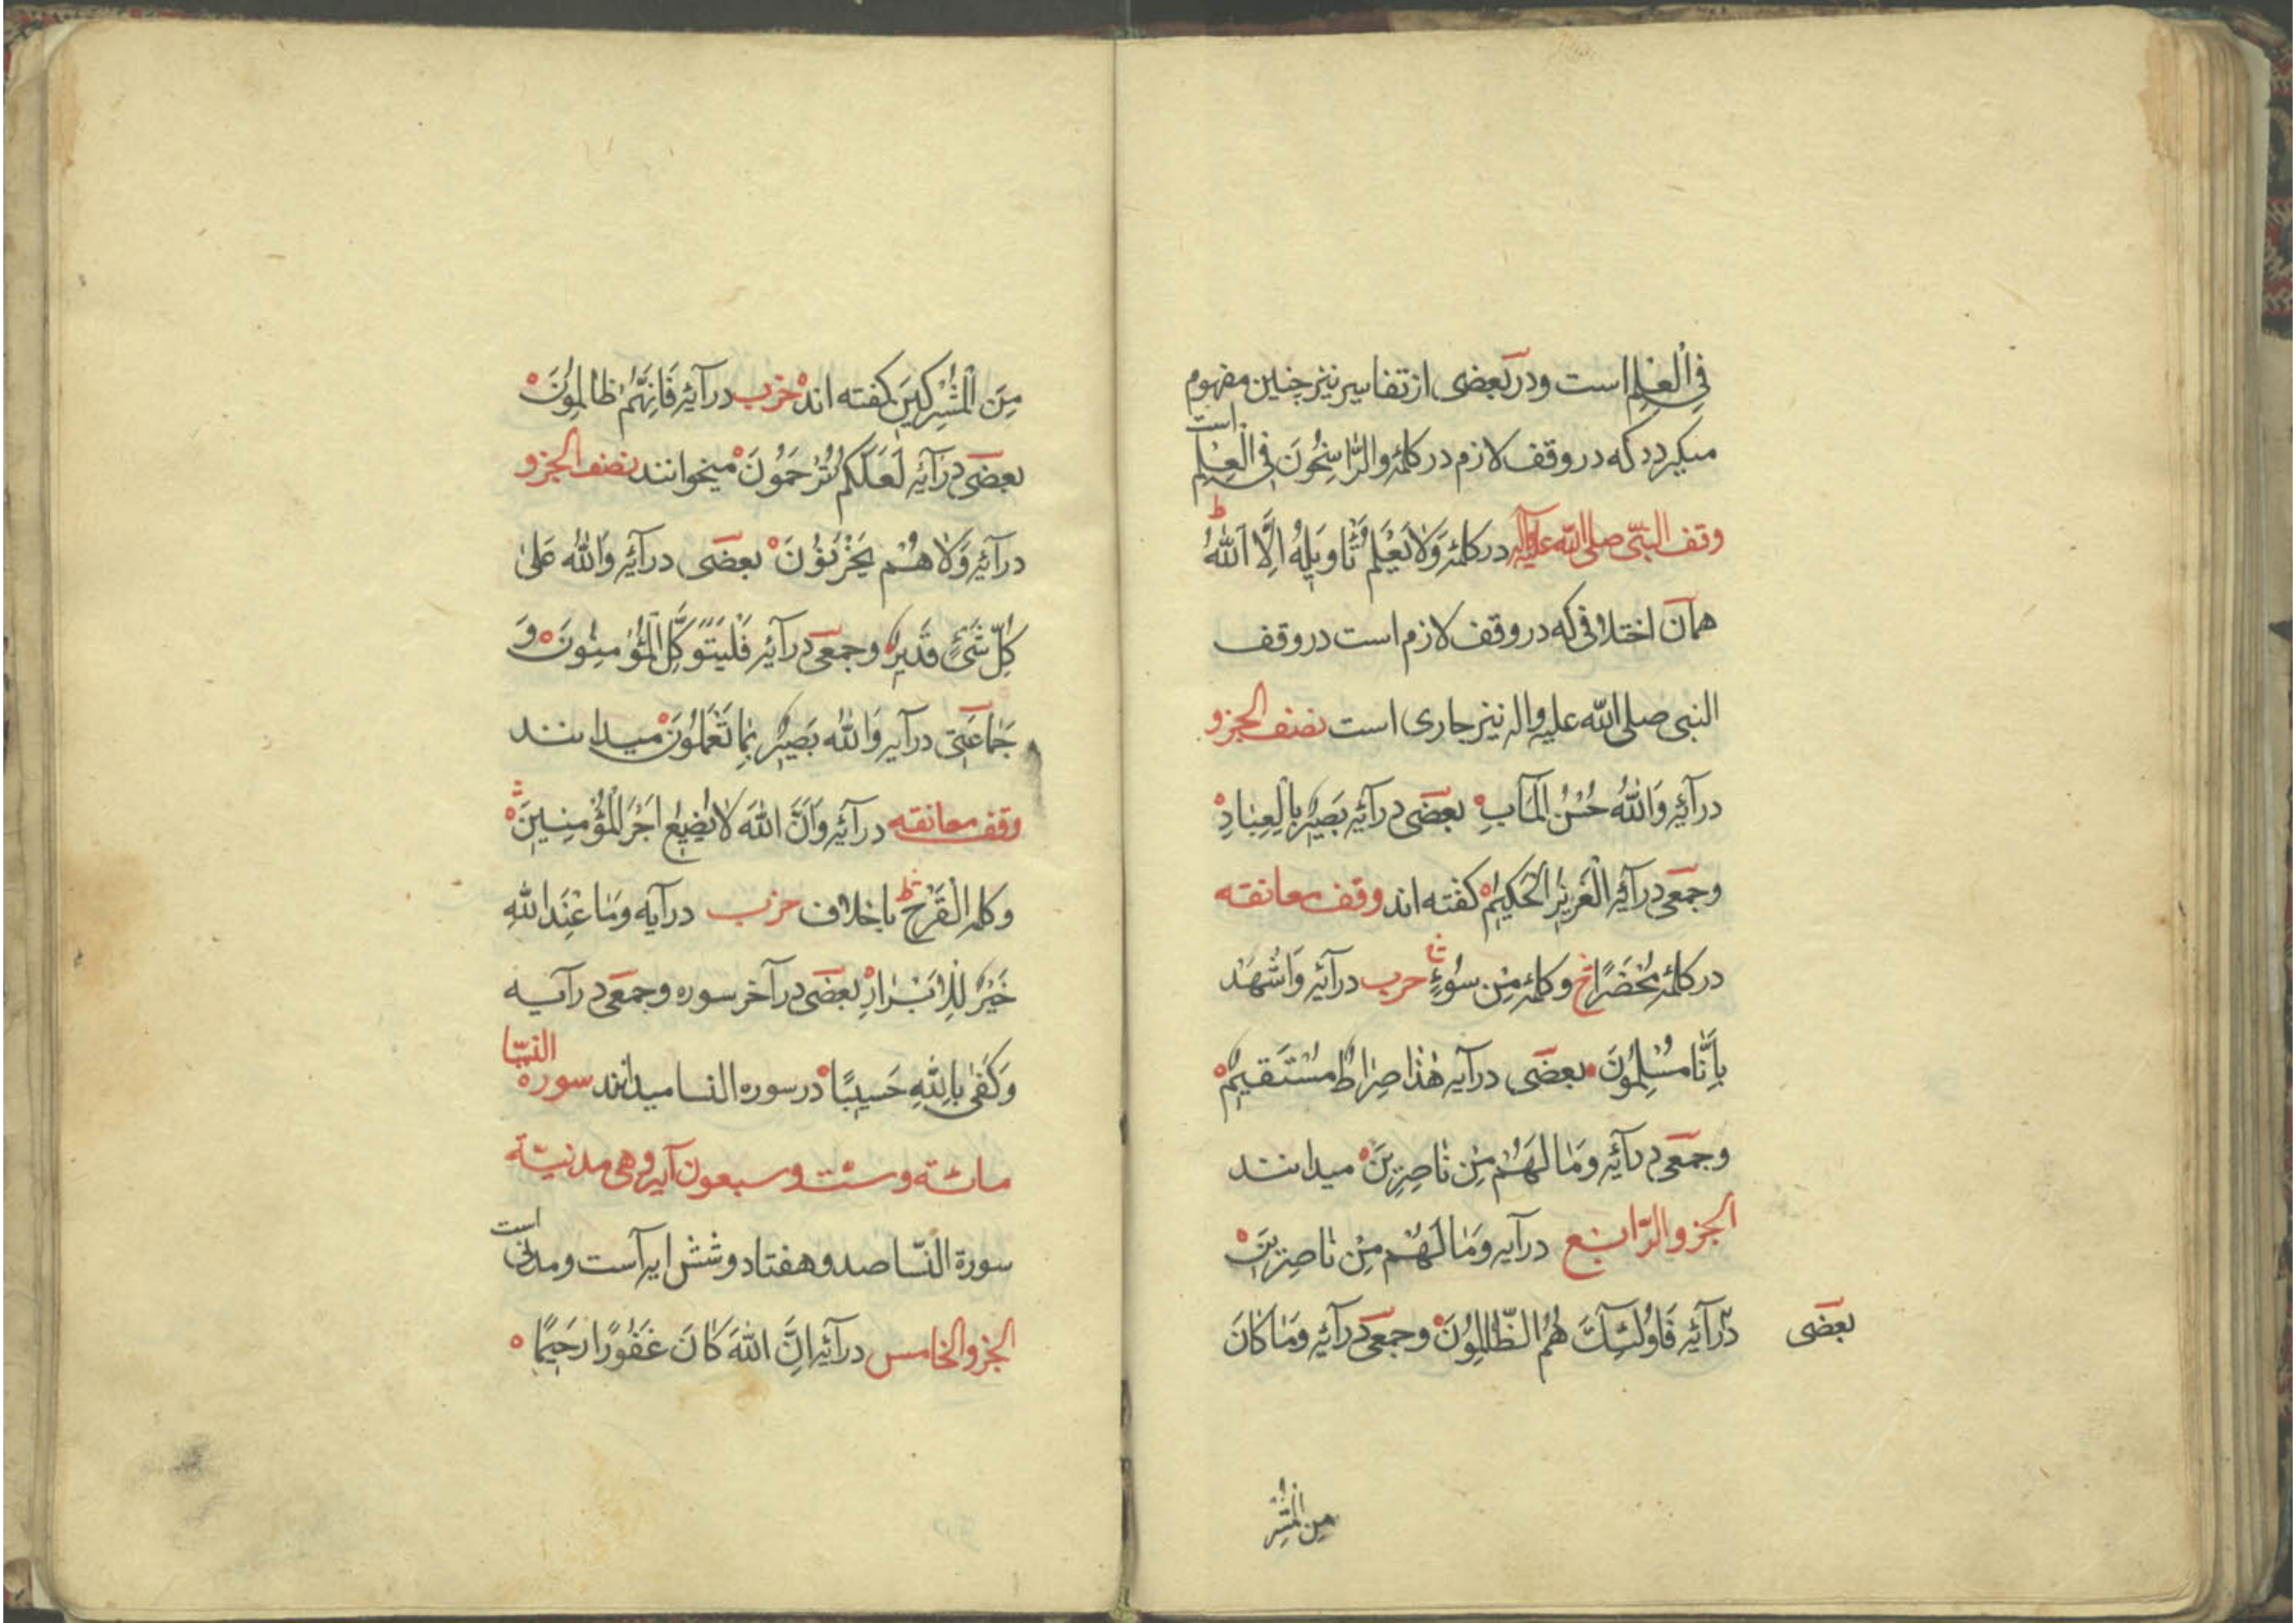 فِي الْعِلْمِ است ودر بعضی از تفاسیر نیز چنین مفهوم
میکردد که در وقف لازم در کلمهٔ والرَّاسِخُونَ فِي الْعِلْمِ است
وقف النبیّ صلی الله علیه وآله در کلمهٔ وَلَا يَعْلَمُ تَأوِيلِهُ اِلَّا اللّٰهُ ط
همان اختلافی که در وقف لازم است در وقف
النبی صلی الله علیه واله نیز جاری است نصف الجزو
در آیهٔ وَاللّٰهُ حُسْنُ الْمَآبِ بعضی در آیهٔ بَصِيرٌ بِالْعِبَادِ
وجمعی در آیهٔ الْعَزِيزِ الْحَكِيمُ کفته اند وقف معانقه
در کلمهٔ مُحْضَرًا وکلمهٔ مِنْ سُوءٍ حزب در آیهٔ وَاشْهَدْ
بِاَنَّا مُسْلِمُونَ بعضی در آیه هٰذَا صِرَاطٌ مُسْتَقِيمٌ
وجمعی در آیهٔ وَمَا لَهُمْ مِنْ نَاصِرِينَ میدانند
الجزو الرّابع در آیه وَمَا لَهُمْ مِنْ نَاصِرِينَ
بعضی در آیهٔ فَاُولٰئِكَ هُمُ الظَّالِمُونَ وجمعی در آیهٔ وَمَا كَانَ
مِنَ الْمُشْرِ
مِنَ الْمُشْرِكِينَ کفته اند حزب در آیهٔ فَاِنَّهُمْ ظَالِمُونَ
بعضی در آیهٔ لَعَلَّكُمْ تُرْحَمُونَ میخوانند نصف الجزو
در آیهٔ وَلَا هُمْ يَحْزَنُونَ بعضی در آیهٔ وَاللّٰهُ عَلٰى
كُلِّ شَيْءٍ قَدِيرٌ وجمعی در آیهٔ فَلْيَتَوَكَّلِ الْمُؤْمِنُونَ وَ
جَمَاعَتی در آیه وَاللّٰهُ بَصِيرٌ بِمَا تَعْمَلُونَ میدانند
وقف معانقه در آیهٔ وَاَنَّ اللّٰهَ لَا يُضِيعُ اَجْرَ الْمُؤْمِنِينَ
وکلمه الْقَرْحُ باخلاف حزب در آیه وَمَا عِنْدَ اللّٰهِ
خَيْرٌ لِلْاَبْرَارِ بعضی در آخر سوره وجمعی در آیه
وَكَفٰى بِاللّٰهِ حَسِيبًا در سوره النسا میدانند سورة النسا
مائتة وستت وسبعون آیه وهی مدنیّة
سورة النّسا صد وهفتاد وشش ایه است ومدنی است
الجزو الخامس در آیهٔ اِنَّ اللّٰهَ كَانَ غَفُورًا رَحِيمًا